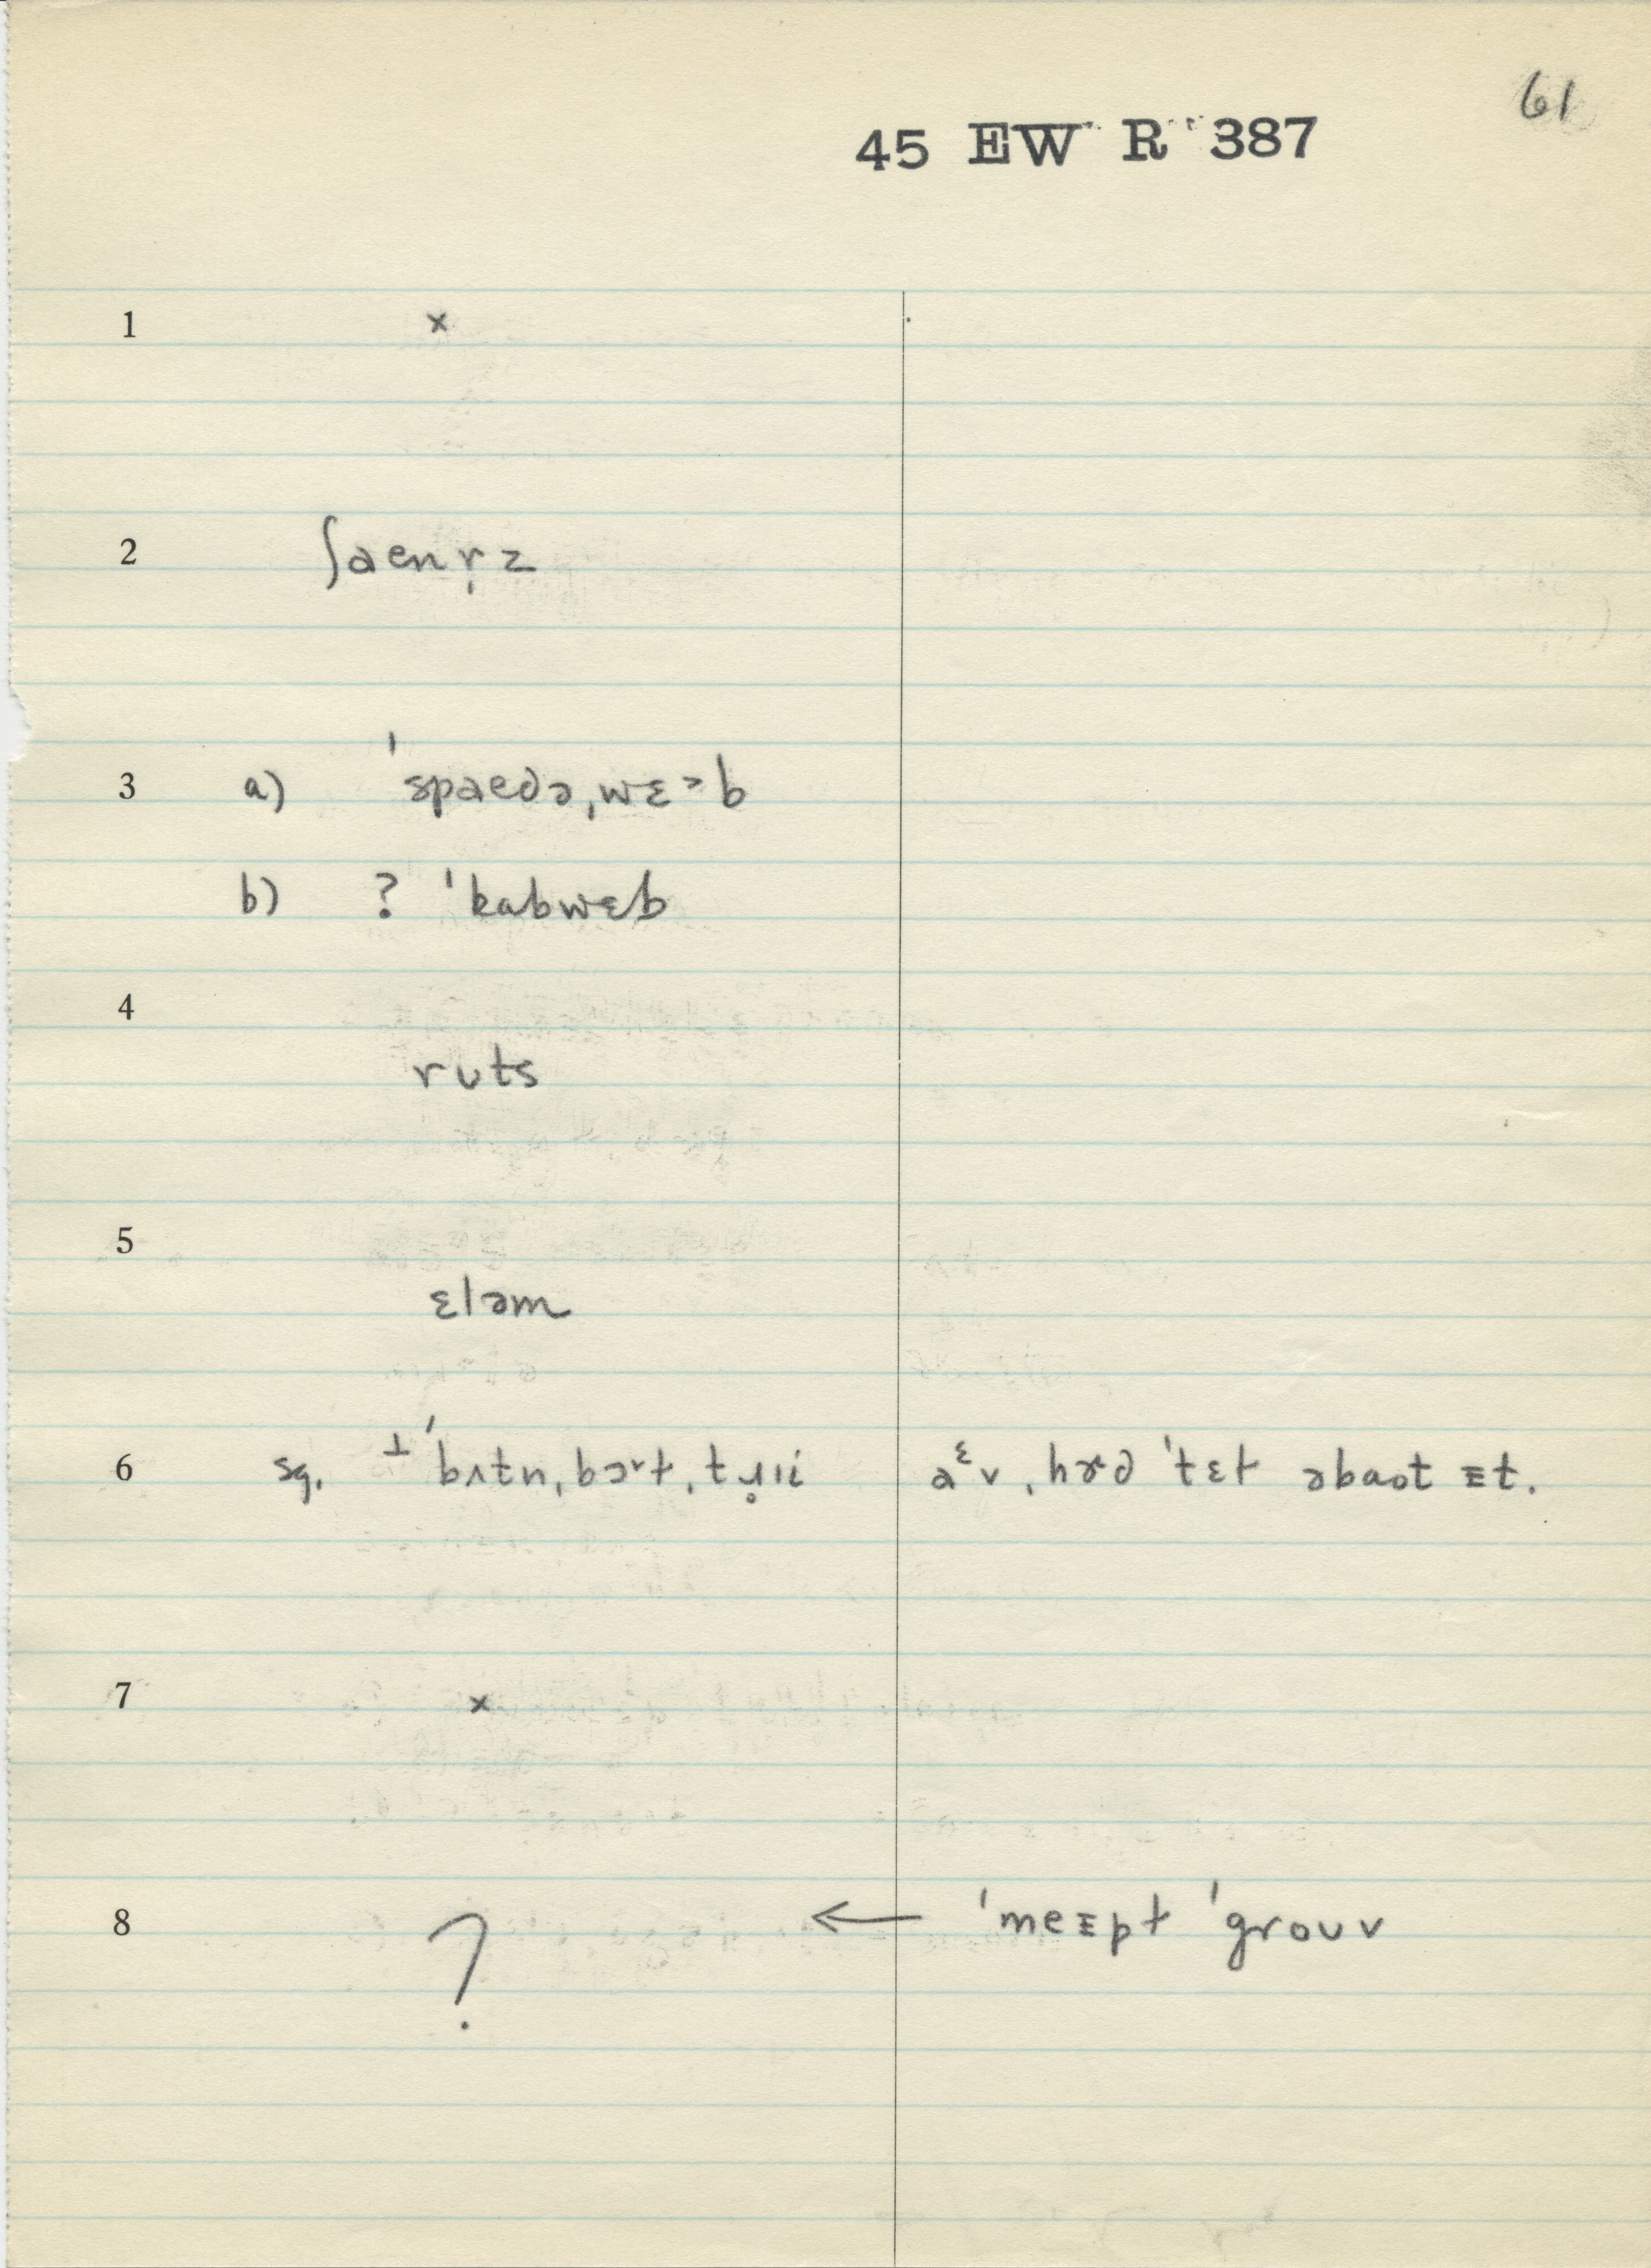 61
45 EW R 387
1 ×
2 ʃaenṛz
3 a) ˈspaedəˌwɛ˃b
b) ? ˈkabwɛb
4
ruts
5
ɛləm
6 sg. ⊥ ˈbʌtn̩bɔ˞t, a^ɛv, hɚd ˈtɛt əbaot ɪt.
7 ×
8 ? ← ˈmeɪpt ˈgrouv